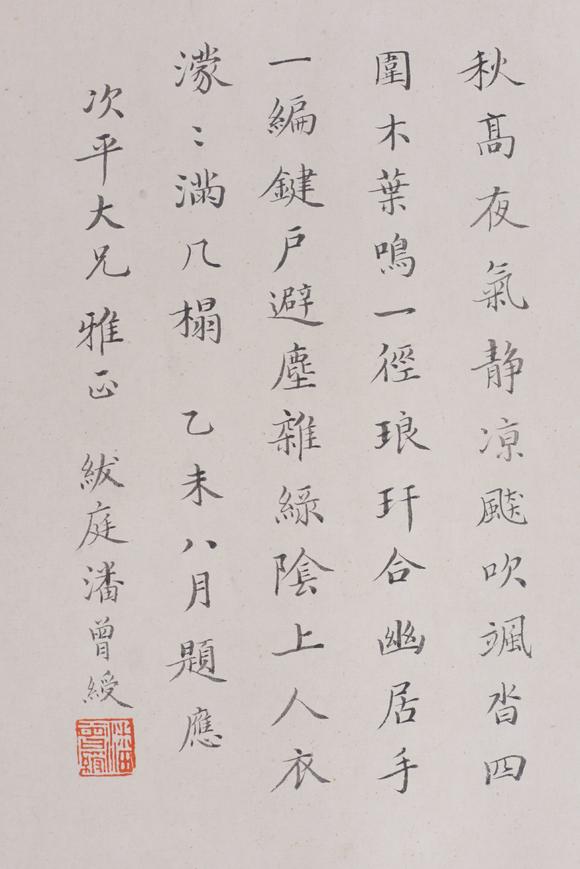 秋高夜氣静涼飈吹颯沓四
圍木葉鳴一徑琅玕合幽居手
一編鍵戶避塵雜綠陰上人衣
濛〻滿几榻 乙未八月題應
次平大兄雅正 紱庭潘曾綬
潘曾綬